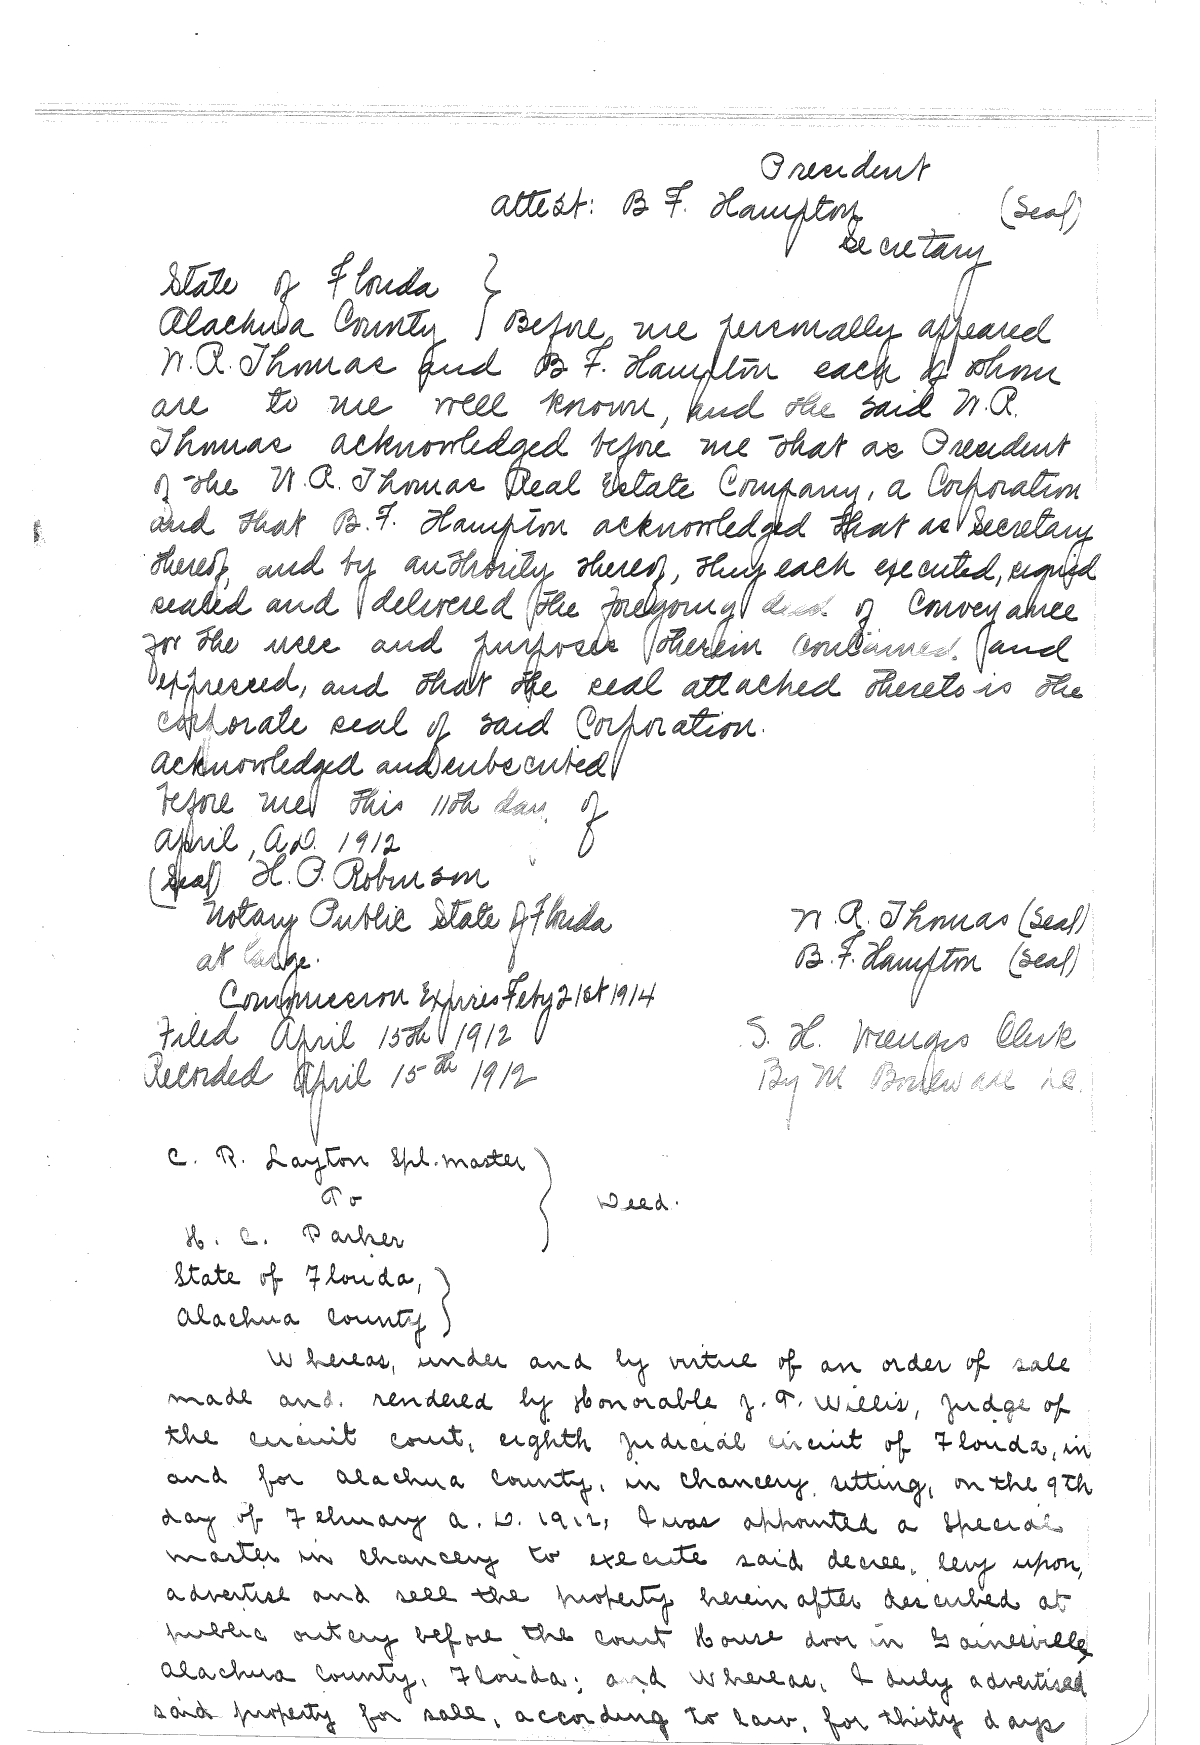 President
Attest: B F. Hampton (Seal)
Secretary
State of Florida }
Alachua County } Before me personally appeared
W. R. Thomas and B F. Hampton each of whom
are to me well known, and the said W. R.
Thomas acknowledged before me that as President
of the W. R. Thomas Real Estate Company, a Corporation
and that B. F. Hampton acknowledged that as Secretary
thereof, and by authority thereof, they each executed, signed
sealed and delivered the foregoing deed of conveyance
for the uses and purposes therein contained and
expressed, and that the seal attached thereto is the
corporate seal of said Corporation.
Acknowledged and subscribed
before me this 11th day of
April, A.D. 1912
(Seal) H. P. Robinson
Notary Public State of Florida W. R. Thomas (Seal)
at large. B. F. Hampton (Seal)
Commission Expires Feby 21st 1914
Filed April 15th 1912 S. H. Wienges Clerk
Recorded April 15th 1912 By M Boulware D.C.
C. R. Layton Spl. Master }
To } Deed.
H. C. Parker }
State of Florida, }
Alachua County }
Whereas, under and by virtue of an order of sale
made and rendered by Honorable J. T. Willis, Judge of
the circuit court, eighth judicial circuit of Florida, in
and for Alachua County, in chancery sitting, on the 9th
day of February A. D. 1912, I was appointed a special
master in chancery to execute said decree, levy upon,
advertise and sell the property herein after described at
public outcry before the court House door in Gainesville,
Alachua County, Florida; and whereas, I duly advertised
said property for sale, according to law, for thirty days